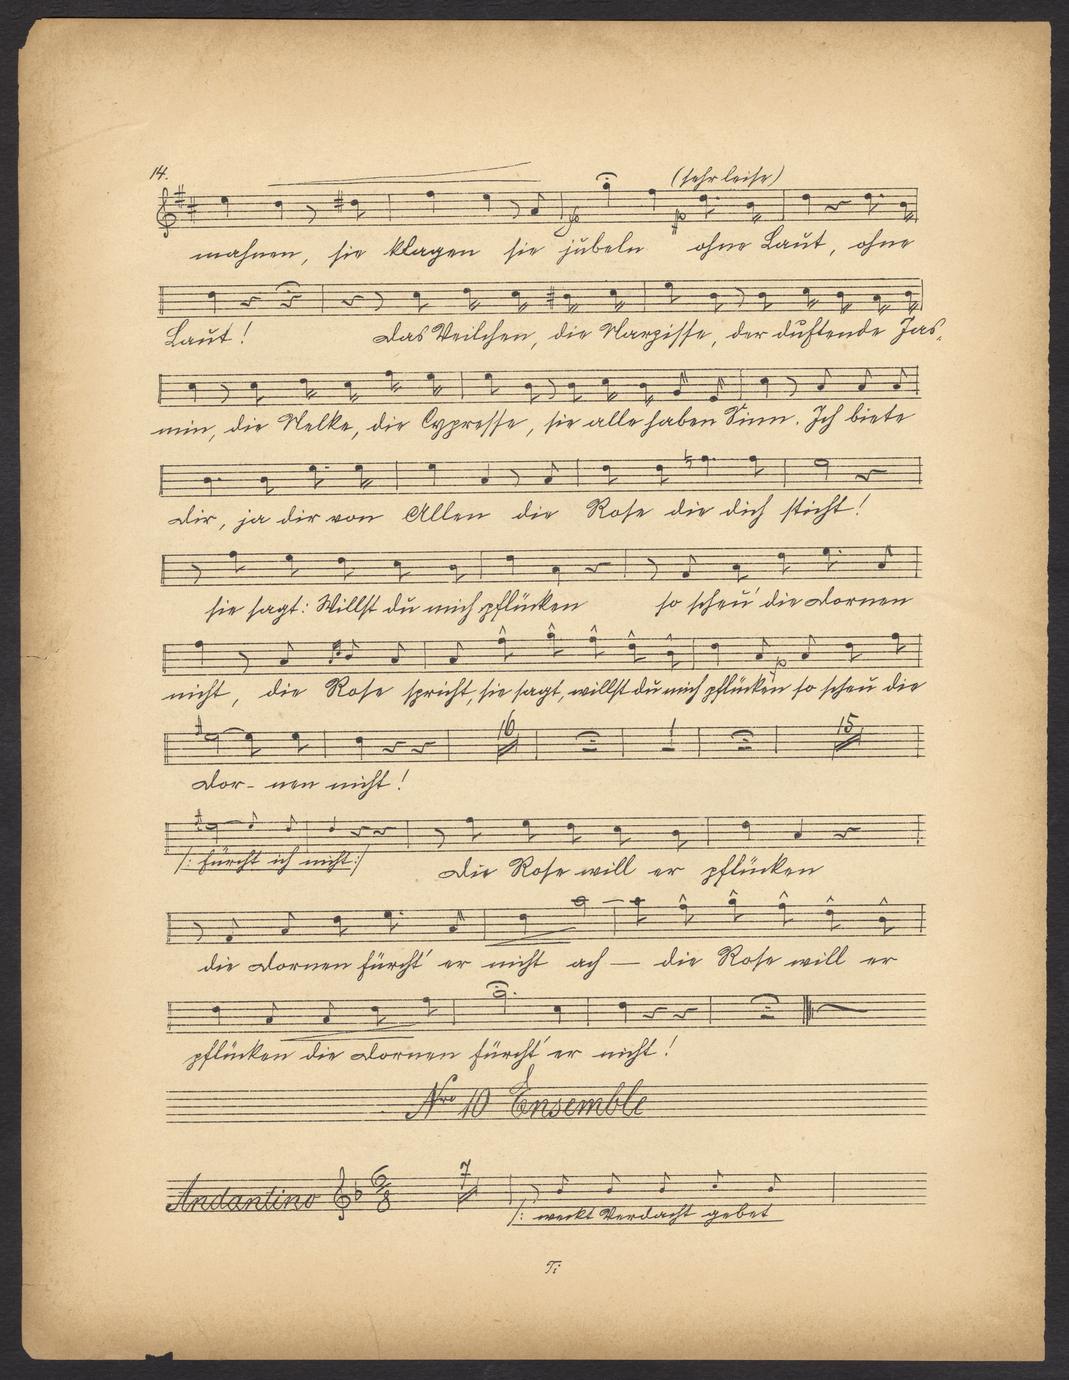 14.
(sehr leise)
mahnen, sie klagen sie jubeln ohne Laut, ohne
Laut! Das Veilchen, die Narzisse, der duftende Jas-
min, die Nelke, die Cypresse, sie alle haben Sinn. Ich biete
Dir, ja dir von Allen die Rose die dich sticht!
sie sagt: Willst du mich pflücken so scheu' die Dornen
nicht, die Rose spricht, sie sagt, willst du mich pflücken so scheu die
16 1 15
Dor- nen nicht!
/: fürcht ich nicht :/ Die Rose will er pflücken
die Dornen fürcht' er nicht ach — die Rose will er
pflücken die Dornen fürcht' er nicht!
Nro 10 Ensemble
Andantino 6/8 7
/: weckt Verdacht gebet
Ti